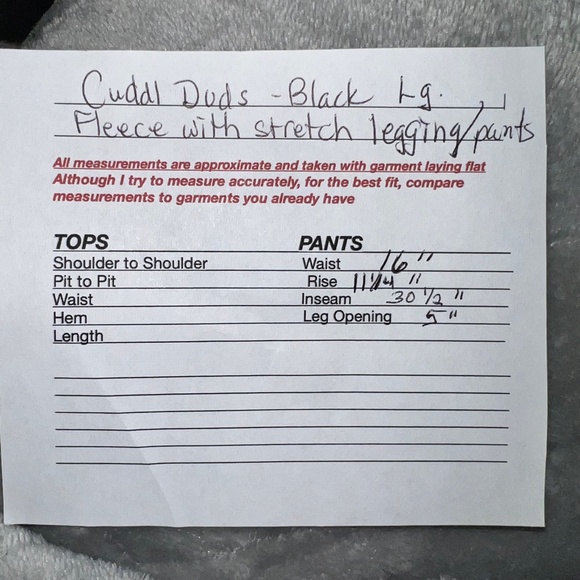 Cuddl Duds - Black Lg.
Fleece with stretch legging/pants
All measurements are approximate and taken with garment laying flat
Although I try to measure accurately, for the best fit, compare
measurements to garments you already have
TOPS PANTS
Shoulder to Shoulder Waist 16"
Pit to Pit Rise 11 1/4"
Waist Inseam 30 1/2"
Hem Leg Opening 5"
Length